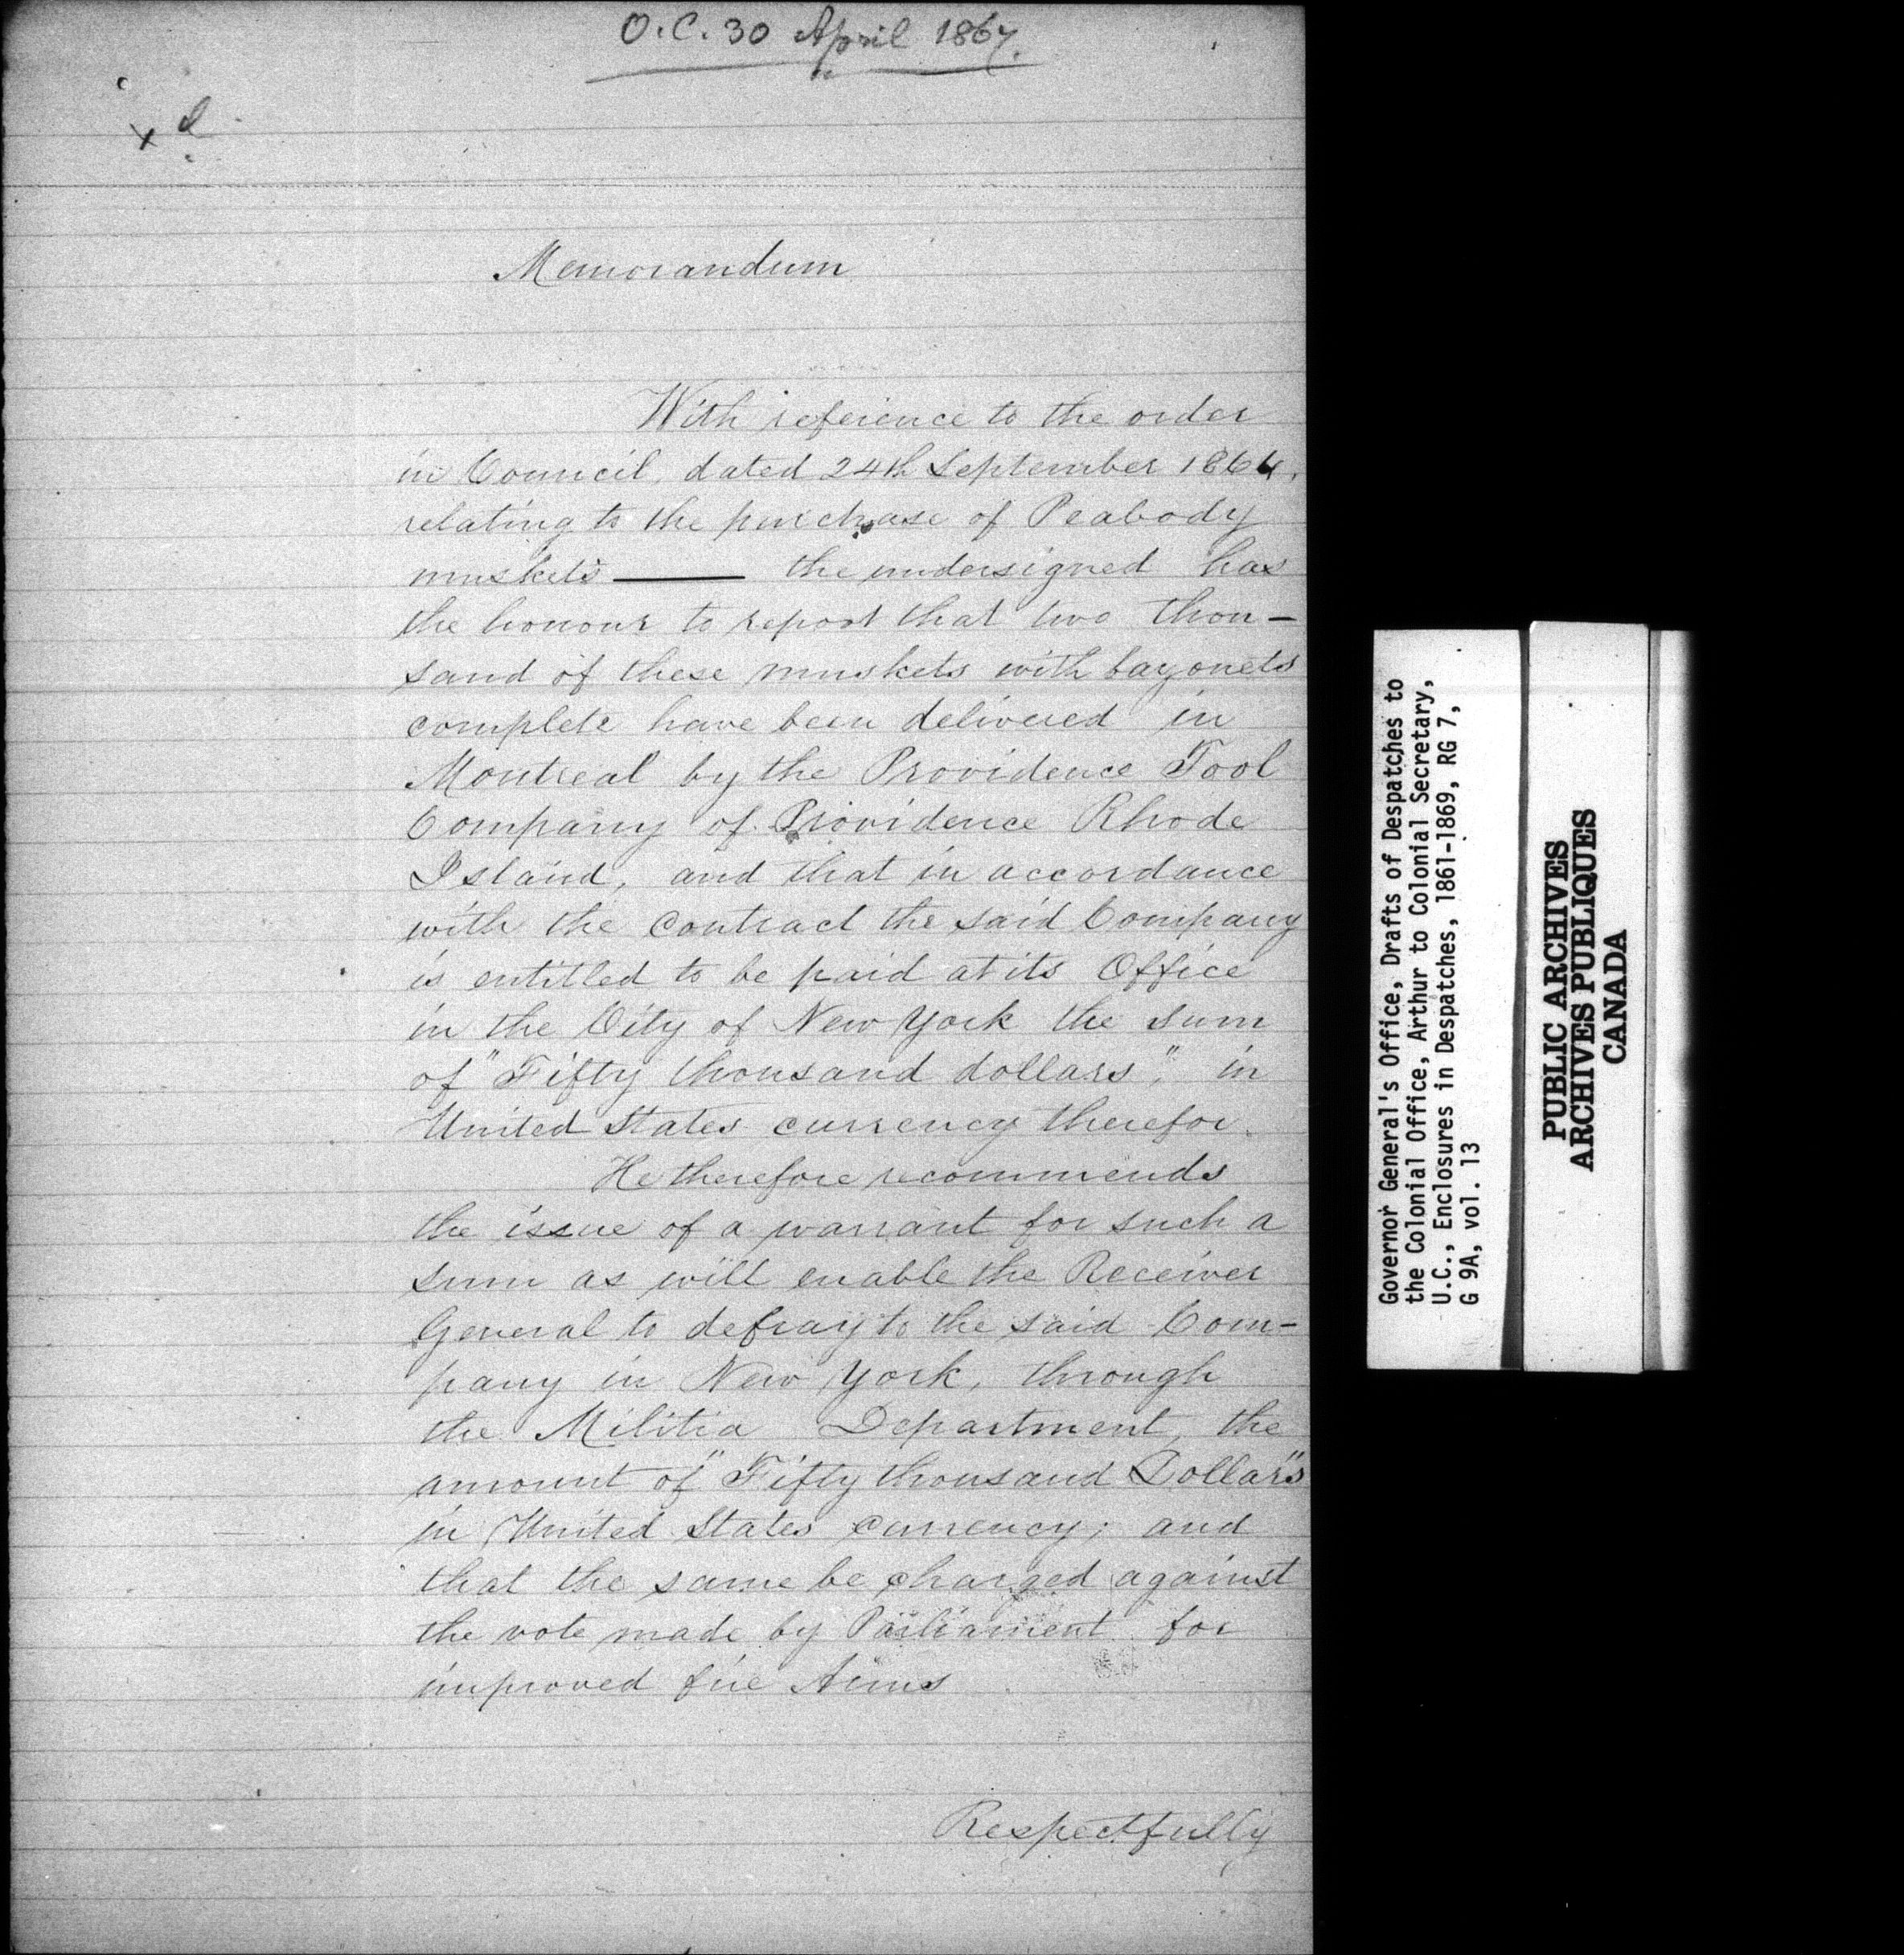 O.C. 30 April 1867.
Memorandum
With reference to the order
in Council, dated 24th September 1866,
relating to the purchase of Peabody
muskets —— the undersigned has
the honour to report that two thou-
sand of these muskets with bayonets
complete have been delivered in
Montreal by the Providence Tool
Company of Providence Rhode
Island, and that in accordance
with the contract the said Company
is entitled to be paid at its Office
in the City of New York the sum
of "Fifty thousand dollars", in
United States currency therefor.
He therefore recommends
the issue of a warrant for such a
sum as will enable the Receiver
General to defray to the said Com-
pany in New York, through
the Militia Department, the
amount of "Fifty thousand Dollars"
in United States currency; and
that the same be charged against
the vote made by Parliament for
improved fire Arms
Respectfully
Governor General's Office, Drafts of Despatches to
the Colonial Office, Arthur to Colonial Secretary,
U.C., Enclosures in Despatches, 1861-1869, RG 7,
G 9A, vol. 13
PUBLIC ARCHIVES
ARCHIVES PUBLIQUES
CANADA